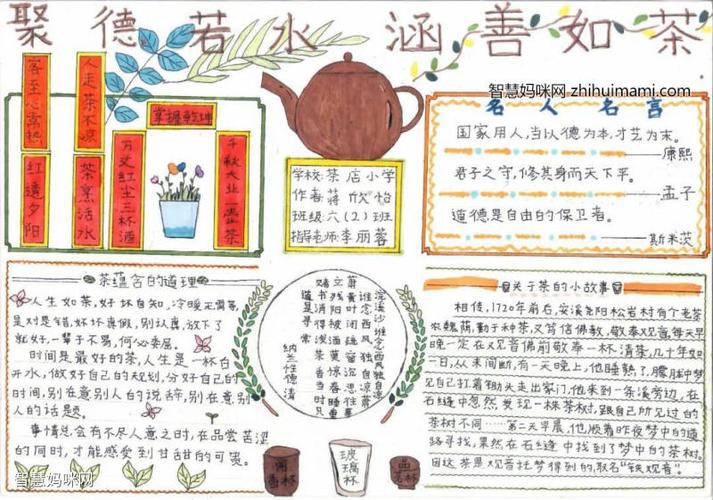 聚德若水 涵善如茶
智慧妈咪网 zhihuimami.com
客至心常热
人走茶不凉
红透夕阳
茶烹活水
掌握乾坤
万丈红尘三杯酒
千秋大业一壶茶
学校:茶店小学
作者:蒋欣怡
班级:六(2)班
指导老师:李丽蓉
名人名言
国家用人,当以德为本,才艺为末。
——康熙
君子之守,修其身而天下平。
——孟子
道德是自由的保卫者。
——斯米茨
茶蕴含的道理
人生如茶,好坏自知,冷暖无需等,
是对是错,好坏真假,别认真,放下了
就好,一辈子不易,何必委屈。
时间是最好的茶,人生是一杯白
开水,做好自己的规划,分好自己的
时间,别在意别人的说辞,别在意别
人的话题。
事情总会有不尽人意之时,在品尝苦涩
的同时,才能感受到甘甜的可贵。
浣溪沙·谁念西风独自凉
谁念西风独自凉
萧萧黄叶闭疏窗
沉思往事立残阳
被酒莫惊春睡重
赌书消得泼茶香
当时只道是寻常
纳兰性德 清
闻香杯
玻璃杯
品茗杯
关于茶的小故事
相传,1720年前后,安溪尧阳松岩村有个老茶
农魏荫,勤于种茶,又笃信佛教,敬奉观音。每天早
晚一定在观音佛前敬奉一杯清茶,几十年如
一日,从未间断,有一天晚上,他睡熟了,朦胧中梦
见自己扛着锄头走出家门,他来到一条溪旁边,在
石缝中忽然发现一株茶树,跟自己所见过的
茶树不同……第二天早晨,他顺着昨夜梦中的道
路寻找,果然在石缝中找到了梦中的茶树。
因这茶是观音托梦得到的,取名“铁观音”。
智慧妈咪网